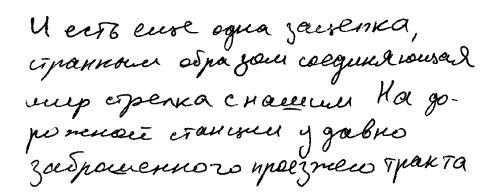 И есть еще одна зацепка,
странным образом соединяющая
мир стрелка с нашим На до-
рожной станции у давно
заброшенного проезжего тракта